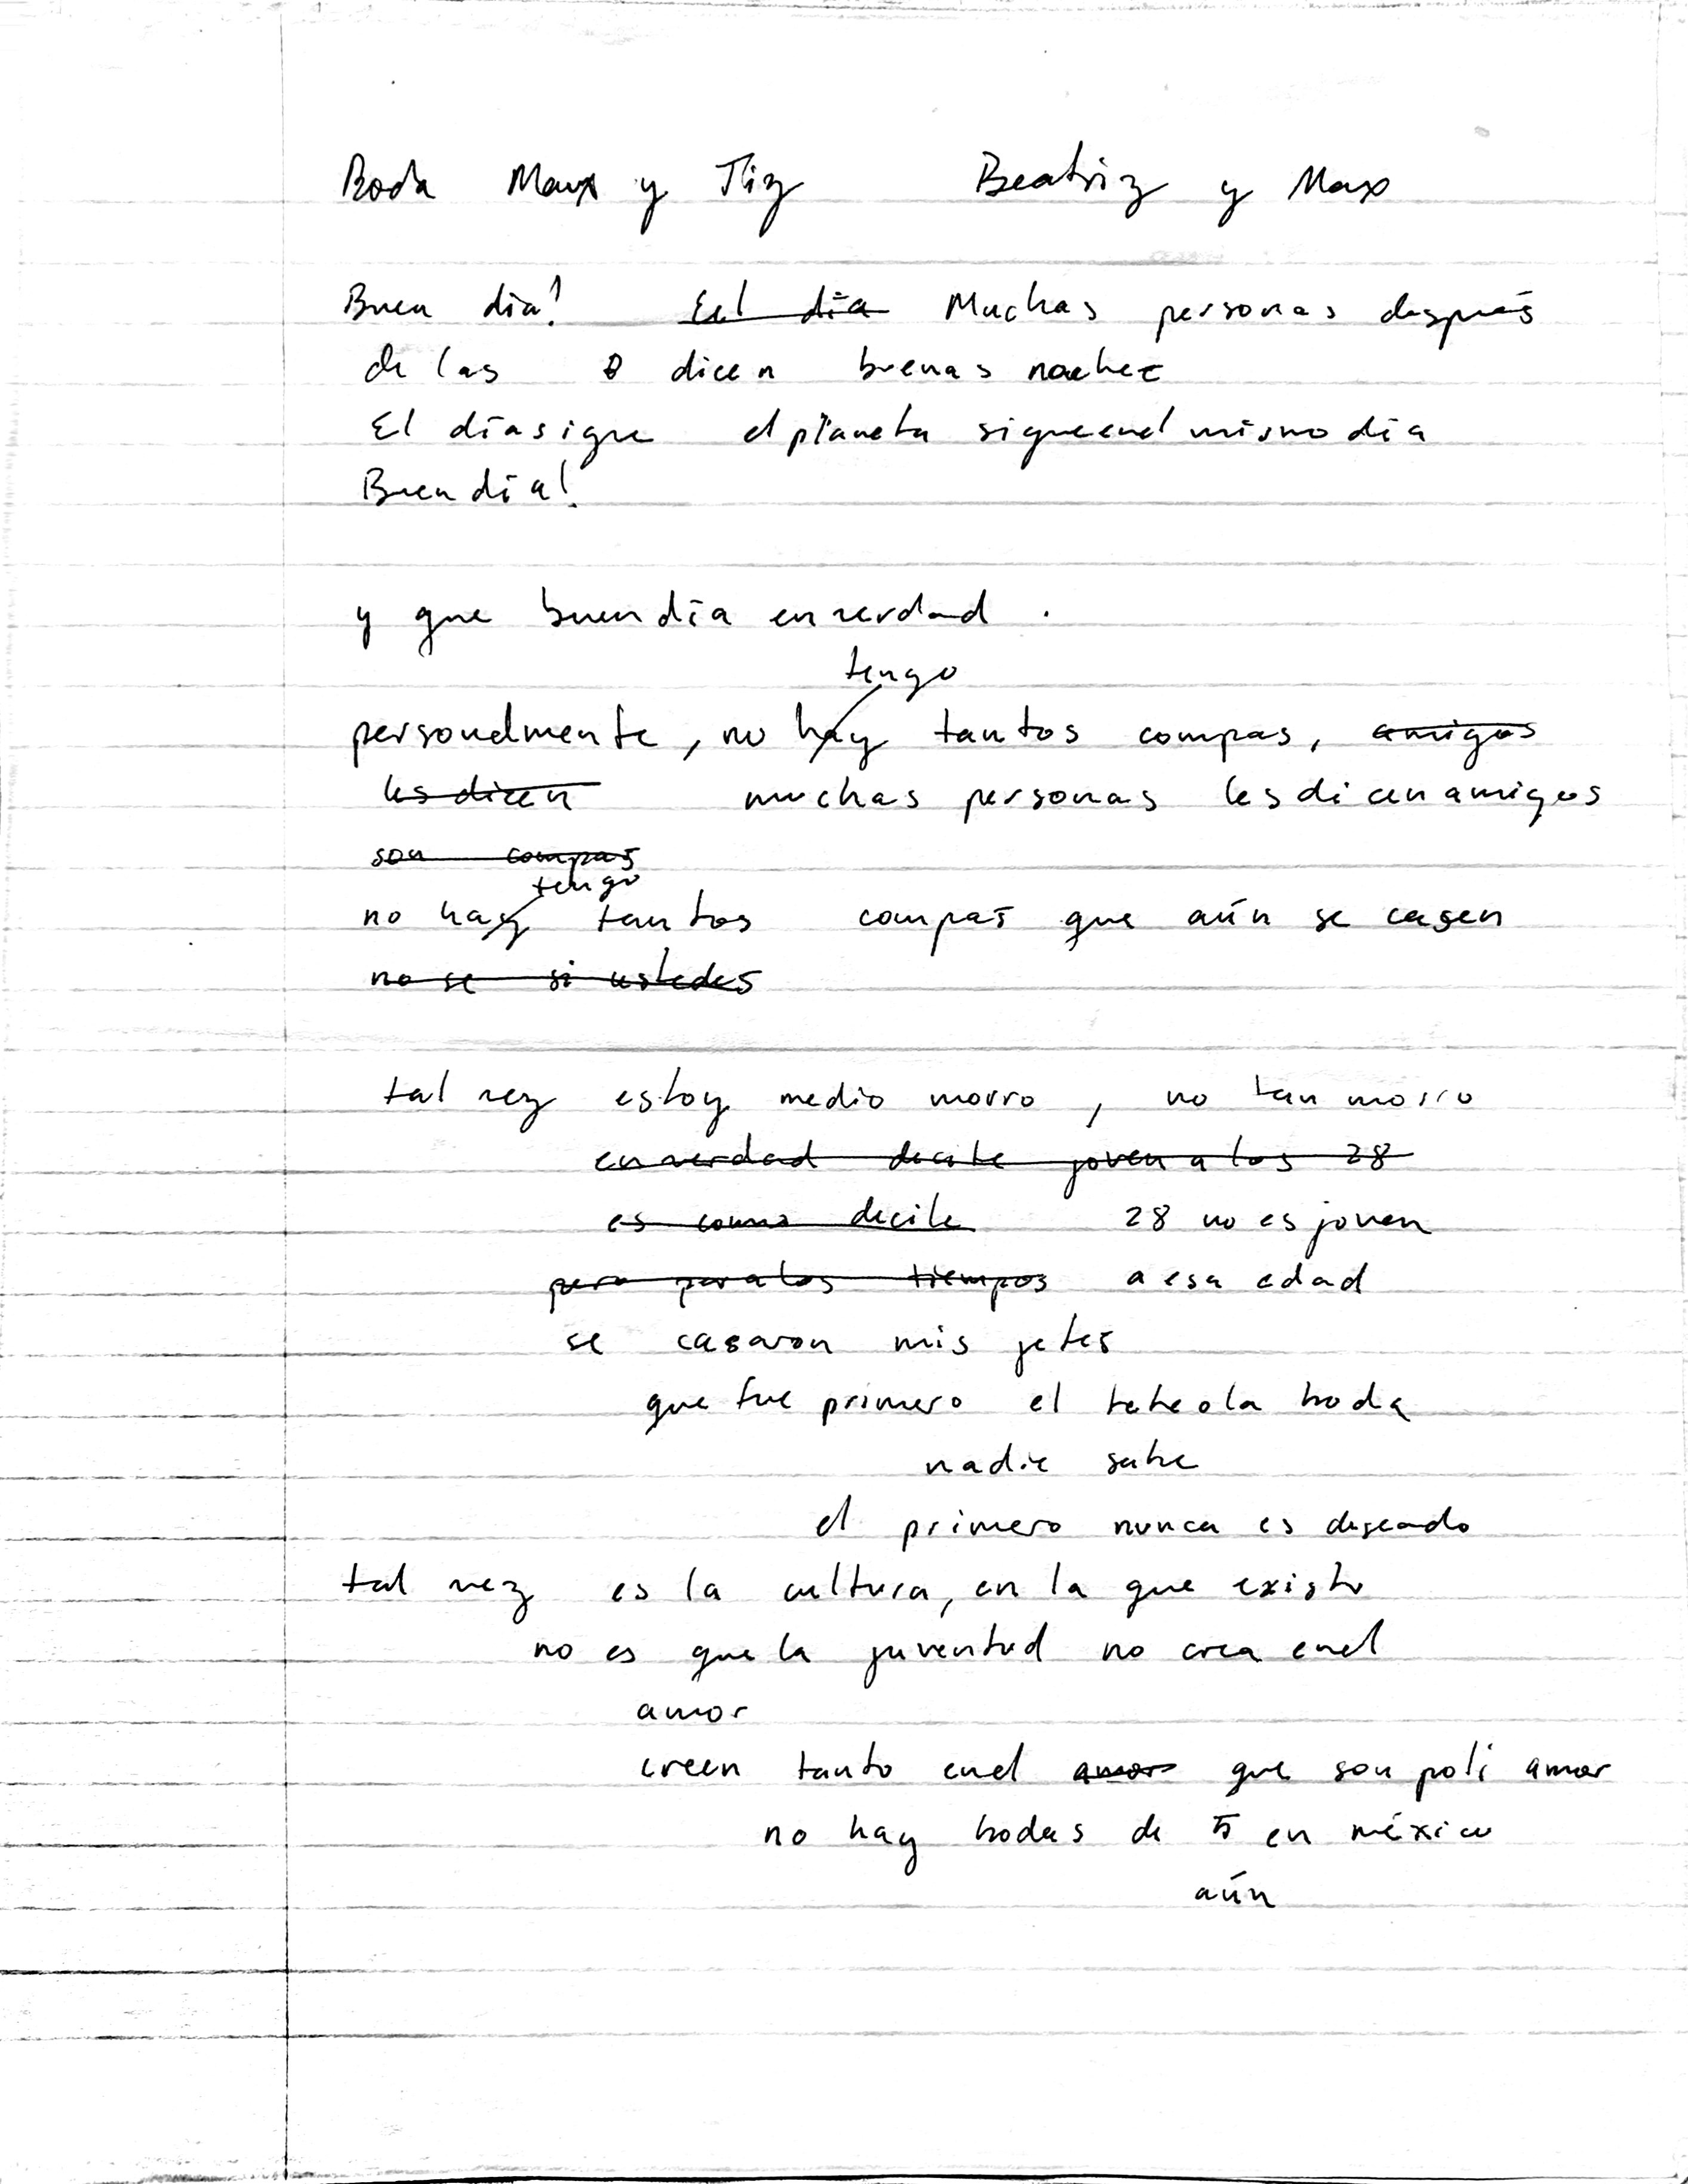 Boda Max y Tiz Beatriz y Max
Buen día! El día Muchas personas después
de las 8 dicen buenas noches
El día sigue el planeta sigue en el mismo día
Buen día!
y que buen día en verdad.
tengo
personalmente, no hay tantos compas, amigos
les dicen muchas personas les dicen amigos
son compas
tengo
no hay tantos compas que aún se casen
no se si ustedes
tal vez estoy medio morro, no tan morro
en verdad decirle joven a los 28
es como decirle 28 no es joven
pero para los tiempos a esa edad
se casaron mis jefes
que fue primero el bebe o la boda
nadie sabe
el primero nunca es deseado
tal vez es la cultura, en la que existo
no es que la juventud no crea en el
amor
creen tanto en el amor que son poli amor
no hay bodas de 5 en méxico
aún